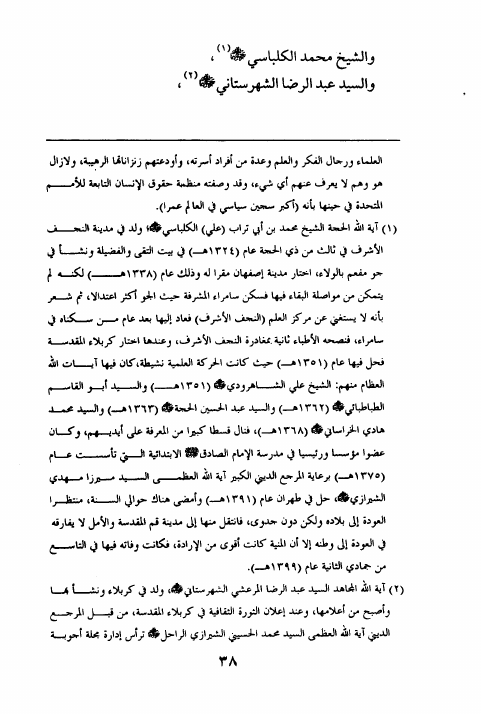 والشيخ محمد الكلباسي (١)،
والسيد عبد الرضا الشهرستاني (٢)،
العلماء ورجال الفكر والعلم وعدة من أفراد أسرته، وأودعتهم زنزاناتها الرهيبة، ولازال
هو وهم لا يعرف عنهم أي شيء، وقد وصفته منظمة حقوق الإنسان التابعة للأمــم
المتحدة في حينها بأنه (أكبر سجين سياسي في العالم عمرا).
(١) آية الله الحجة الشيخ محمد بن أبي تراب (علي) الكلباسي، ولد في مدينة النجــف
الأشرف في ثالث من ذي الحجة عام (١٣٢٤هــ) في بيت التقى والفضيلة ونشــأ في
جو مفعم بالولاء، اختار مدينة إصفهان مقرا له وذلك عام (١٣٣٨هــــ) لكنــه لم
يتمكن من مواصلة البقاء فيها فسكن سامراء المشرفة حيث الجو أكثر اعتدالا، ثم شــعر
بأنه لا يستغني عن مركز العلم (النجف الأشرف) فعاد إليها بعد عام مــن سكناه في
سامراء، فنصحه الأطباء ثانية بمغادرة النجف الأشرف، وعندها اختار كربلاء المقدســة
فحل فيها عام (١٣٥١هــ) حيث كانت الحركة العلمية نشيطة، كان فيها آيــات الله
العظام منهم: الشيخ علي الشــاهرودي (١٣٥١هــ) والسيد أبــو القاســم
الطباطبائي (١٣٦٢هــ) والسيد عبد الحسين الحجة (١٣٦٣هــ) والسيد محمــد
هادي الخراساني (١٣٦٨هــ)، فنال قسطا كبيرا من المعرفة على أيديــهم، وكــان
عضوا مؤسسا ورئيسيا في مدرسة الإمام الصادق الابتدائية الــتي تأسســت عــام
(١٣٧٥هــ) برعاية المرجع الديني الكبير آية الله العظمــى السيد مــيرزا مــهدي
الشيرازي، حل في طهران عام (١٣٩١هــ) وأمضى هناك حوالي الســنة، منتظــرا
العودة إلى بلاده ولكن دون جدوى، فانتقل منها إلى مدينة قم المقدسة والأمل لا يفارقه
في العودة إلى وطنه إلا أن المنية كانت أقوى من الإرادة، فكانت وفاته فيها في التاســع
من جمادي الثانية عام (١٣٩٩هــ).
(٢) آية الله المجاهد السيد عبد الرضا المرعشي الشهرستاني، ولد في كربلاء ونشــأ بهــا
وأصبح من أعلامها، وعند إعلان الثورة الثقافية في كربلاء المقدسة، من قبــل المرجــع
الديني آية الله العظمى السيد محمد الحسيني الشيرازي الراحل ترأس إدارة مجلة أجوبــة
٣٨